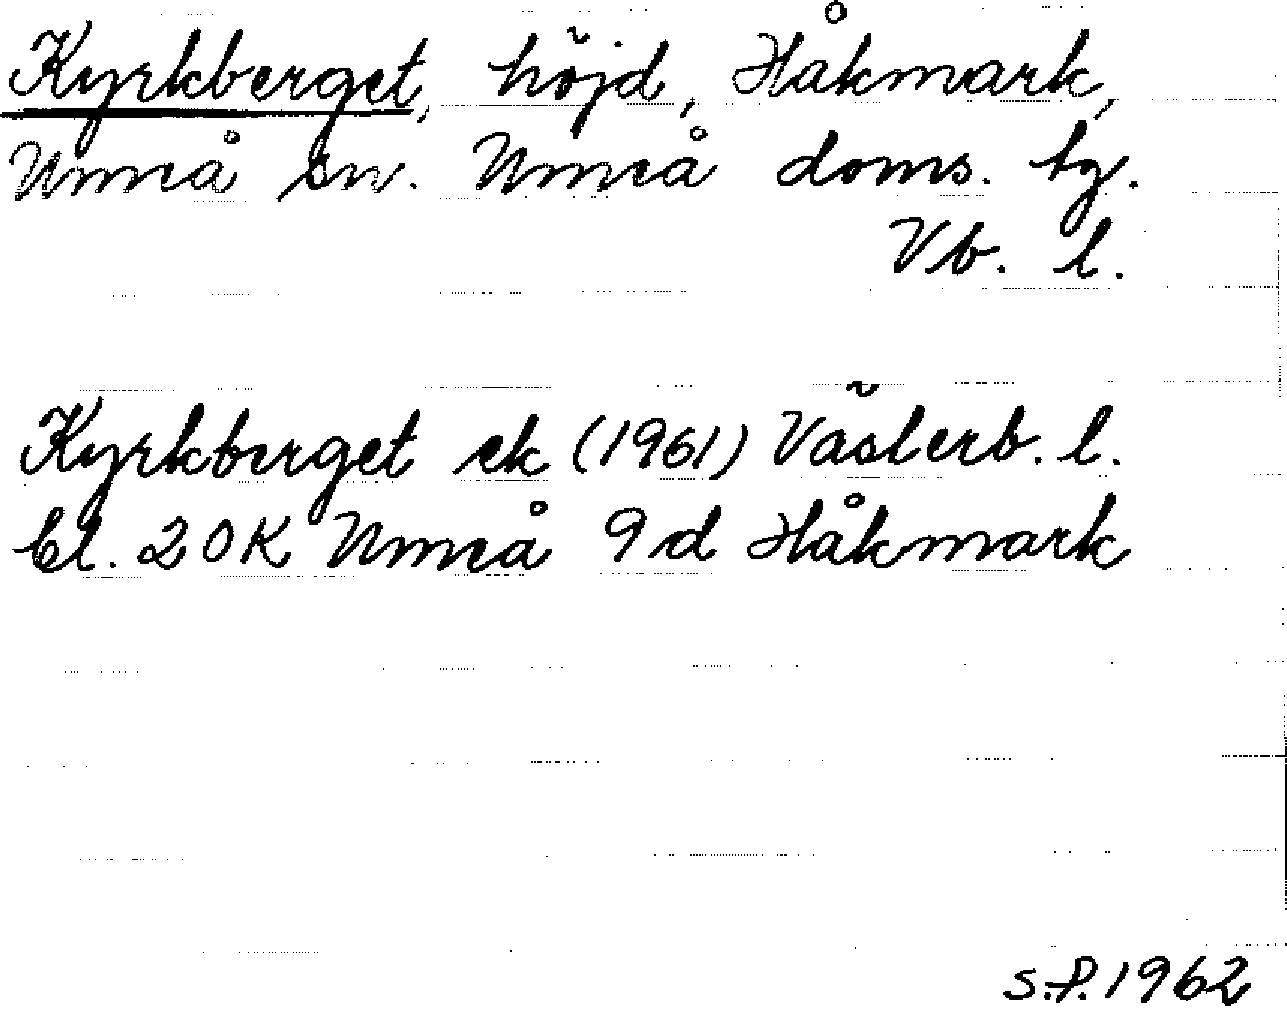 Kyrkberget, höjd, Håkmark,
Umeå sn. Umeå doms. tg.
Vb. l.
Kyrkberget ek (1961) Västerb. l.
bl. 20K Umeå 9d Håkmark
S.P. 1962